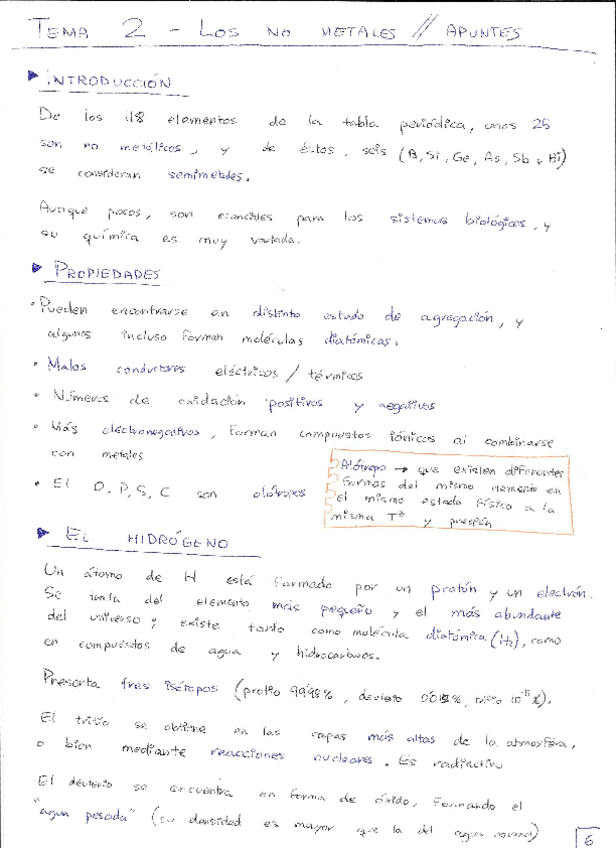 TEMA 2 - LOS NO METALES // APUNTES
INTRODUCCIÓN
De los 118 elementos de la tabla periódica, unos 25
son no metálicos, y de éstos, seis (B, Si, Ge, As, Sb y Bi)
se consideran semimetales.
Aunque pocos, son esenciales para los sistemas biológicos, y
su química es muy variada.
PROPIEDADES
• Pueden encontrarse en distinto estado de agregación, y
algunos incluso forman moléculas diatómicas.
• Malos conductores eléctricos / térmicos
• Números de oxidación positivos y negativos
• Más electronegativos, forman compuestos iónicos al combinarse
con metales
• El O, P, S, C son alótropos
Alótropo → que existen diferentes
formas del mismo elemento en
el mismo estado físico a la
misma Tª y presión
EL HIDRÓGENO
Un átomo de H está formado por un protón y un electrón.
Se trata del elemento más pequeño y el más abundante
del universo; existe tanto como molécula diatómica (H₂), como
en compuestos de agua y hidrocarburos.
Presenta tres isótopos (protio 99'98%, deuterio 0'015%, tritio 10⁻¹⁵%).
El tritio se obtiene en las capas más altas de la atmósfera,
o bien mediante reacciones nucleares. Es radiactivo
El deuterio se encuentra en forma de óxido, formando el
"agua pesada" (su densidad es mayor que la del agua normal)
6